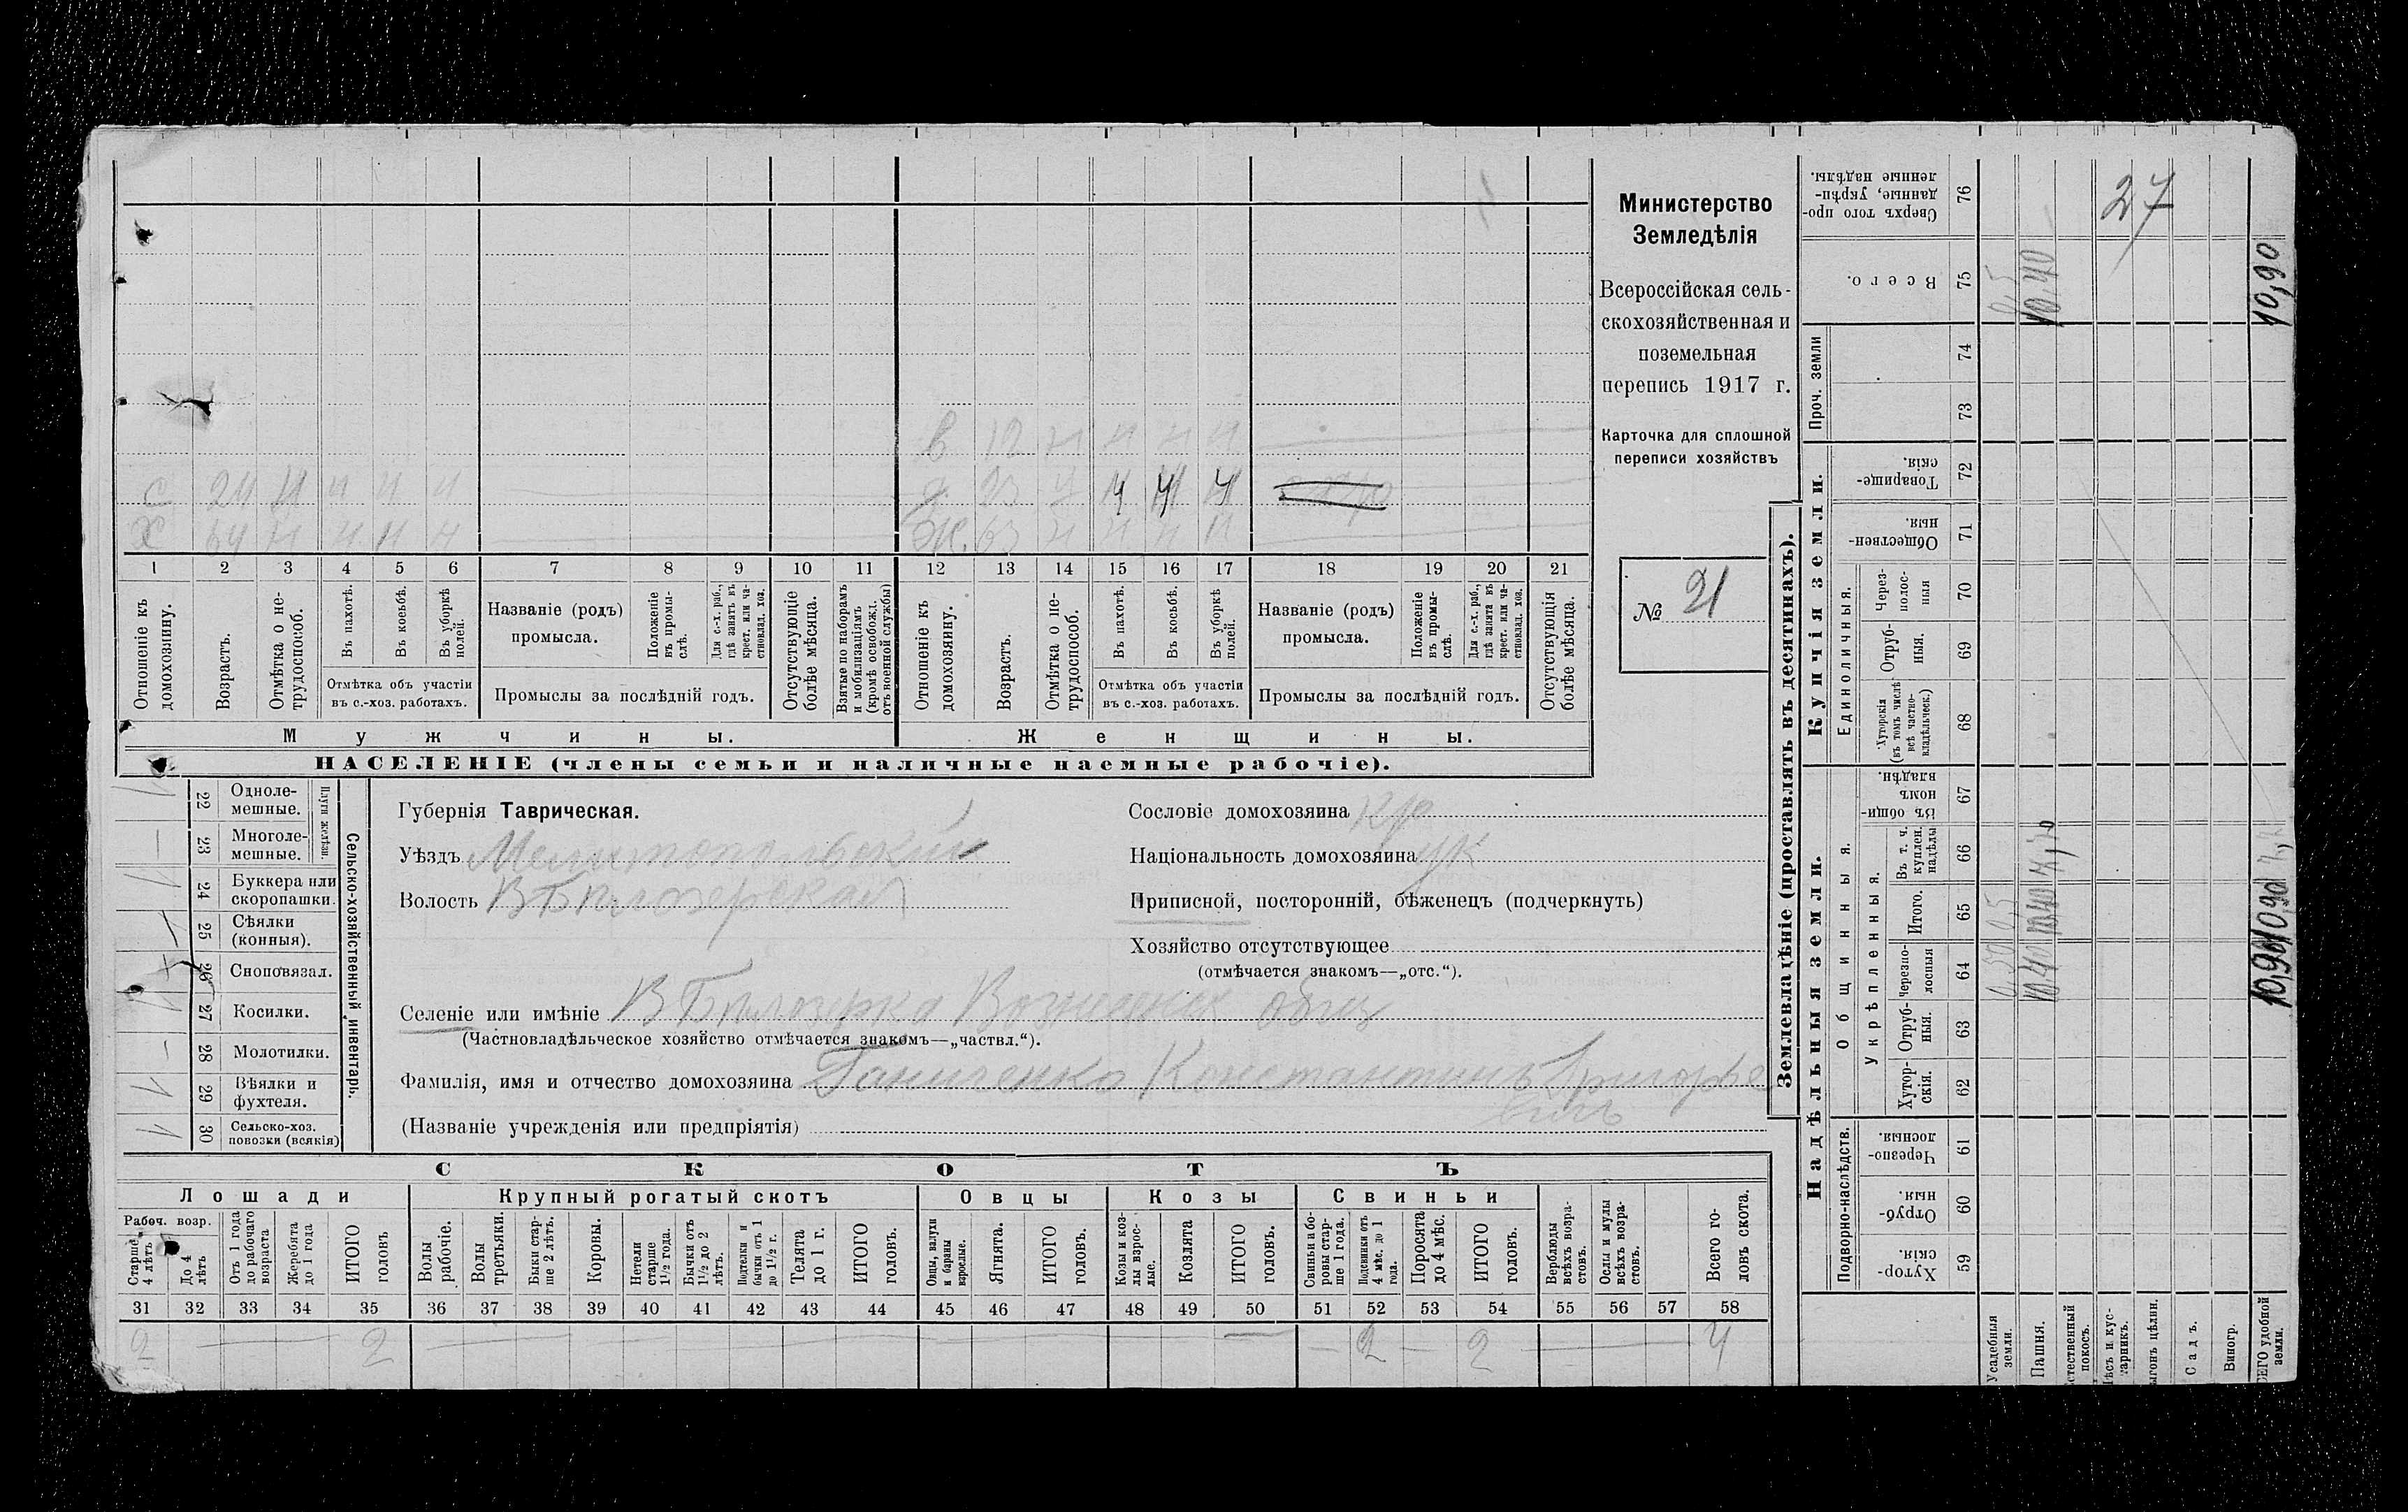 Министерство
Земледѣлія
Всероссійская сель-
скохозяйственная и
поземельная
перепись 1917 г.
Карточка для сплошной
переписи хозяйствъ
№ 21
в 12 н н н н
с 24 н н н н
д 23 ч ч ч ч
х 64 н н н н
Ж. 63 н н н н
1 2 3 4 5 6 7 8 9 10 11 12 13 14 15 16 17 18 19 20 21
Отношеніе къ домохозяину.
Возрастъ.
Отмѣтка о не-трудоспособ.
Въ пахотѣ.
Въ косьбѣ.
Въ уборкѣ полей.
Отмѣтка объ участіи
въ с.-хоз. работахъ.
Названіе (родъ)
промысла.
Положеніе въ промы-слѣ.
Для с.-х. раб., гдѣ занятъ въ крест. или ча-стновлад. хоз.
Промыслы за послѣдній годъ.
Отсутствующіе болѣе мѣсяца.
Взятые по наборамъ и мобилизаціямъ (кромѣ освобожд. отъ военной службы)
Отношеніе къ домохозяину.
Возрастъ.
Отмѣтка о не-трудоспособ.
Въ пахотѣ.
Въ косьбѣ.
Въ уборкѣ полей.
Отмѣтка объ участіи
въ с.-хоз. работахъ.
Названіе (родъ)
промысла.
Положеніе въ промы-слѣ.
Для с.-х. раб., гдѣ занята въ крест. или ча-стновлад. хоз.
Промыслы за послѣдній годъ.
Отсутствующія болѣе мѣсяца.
Мужчины.
Женщины.
НАСЕЛЕНІЕ (члены семьи и наличные наемные рабочіе).
Сельско-хозяйственный инвентарь.
Плуги желѣзн.
22 Одноле-мешные.
23 Многоле-мешные.
24 Буккера или скоропашки.
25 Сѣялки (конныя).
26 Сноповязал.
27 Косилки.
28 Молотилки.
29 Вѣялки и фухтеля.
30 Сельско-хоз. повозки (всякія)
Губернія Таврическая.
Уѣздъ Мелитопольский
Волость В Бѣлозерская
Сословіе домохозяина кр
Національность домохозяина ук
Приписной, посторонній, бѣженецъ (подчеркнуть)
Хозяйство отсутствующее
(отмѣчается знакомъ—„отс.“).
Селеніе или имѣніе В Бѣлозерка Вознесенск общ
(Частновладѣльческое хозяйство отмѣчается знакомъ—„частвл.“).
Фамилія, имя и отчество домохозяина Ганиченко Константинъ Григорье
вичъ
(Названіе учрежденія или предпріятія)
СКОТЪ
Лошади
Крупный рогатый скотъ
Овцы
Козы
Свиньи
Рабоч. возр.
Старше 4 лѣтъ
До 4 лѣтъ
Отъ 1 года до рабочаго возраста
Жеребята до 1 года
ИТОГО головъ
Волы рабочіе.
Волы третьяки.
Быки стар-ше 2 лѣтъ.
Коровы.
Нетели старше 1½ года.
Бычки отъ 1½ до 2 лѣтъ.
Подтелки и бычки отъ 1 до 1½ г.
Телята до 1 г.
ИТОГО головъ.
Овцы, валухи и бараны взрослые.
Ягнята.
ИТОГО головъ.
Козы и коз-лы взрос-лые.
Козлята
ИТОГО головъ.
Свиньи и бо-ровы стар-ше 1 года.
Подсвинки отъ 4 мѣс. до 1 года.
Поросята до 4 мѣс.
ИТОГО головъ.
Верблюды всѣхъ возра-стовъ.
Ослы и мулы всѣхъ возра-стовъ.
Всего го-ловъ скота.
31 32 33 34 35 36 37 38 39 40 41 42 43 44 45 46 47 48 49 50 51 52 53 54 55 56 57 58
2 — 2 — — 2 — 2 — 4
Землевладѣніе (проставлять въ десятинахъ).
Надѣльныя земли.
Купчія земли.
Проч. земли
Подворно-наслѣдств.
Общинныя.
Укрѣпленныя.
Единоличныя.
Сверхъ того про-данные, укрѣп-ленные надѣлы. 76
Всего. 75
74
73
Товарище-скія. 72
Обществен-ныя. 71
Через-полос-ныя 70
Отруб-ныя. 69
Хуторскія (въ томъ числѣ всѣ частно-владѣльческ.) 68
Въ общи-номъ владѣн. 67
Въ т. ч. куплен. надѣлы 66
Итого. 65
Черезпо-лосныя 64
Отруб-ныя. 63
Хутор-скія. 62
Черезпо-лосныя. 61
Отруб-ныя. 60
Хутор-скія. 59
Усадебныя земли.
Пашня.
стественный покосъ.
Лѣсъ и кус-тарникъ.
ыгонъ цѣлин.
Садъ.
Виногр.
СЕГО удобной земли.
27
0,5
10,40
10,90
0,50 0,5
10,40 10,40 7,70
10,90 10,90